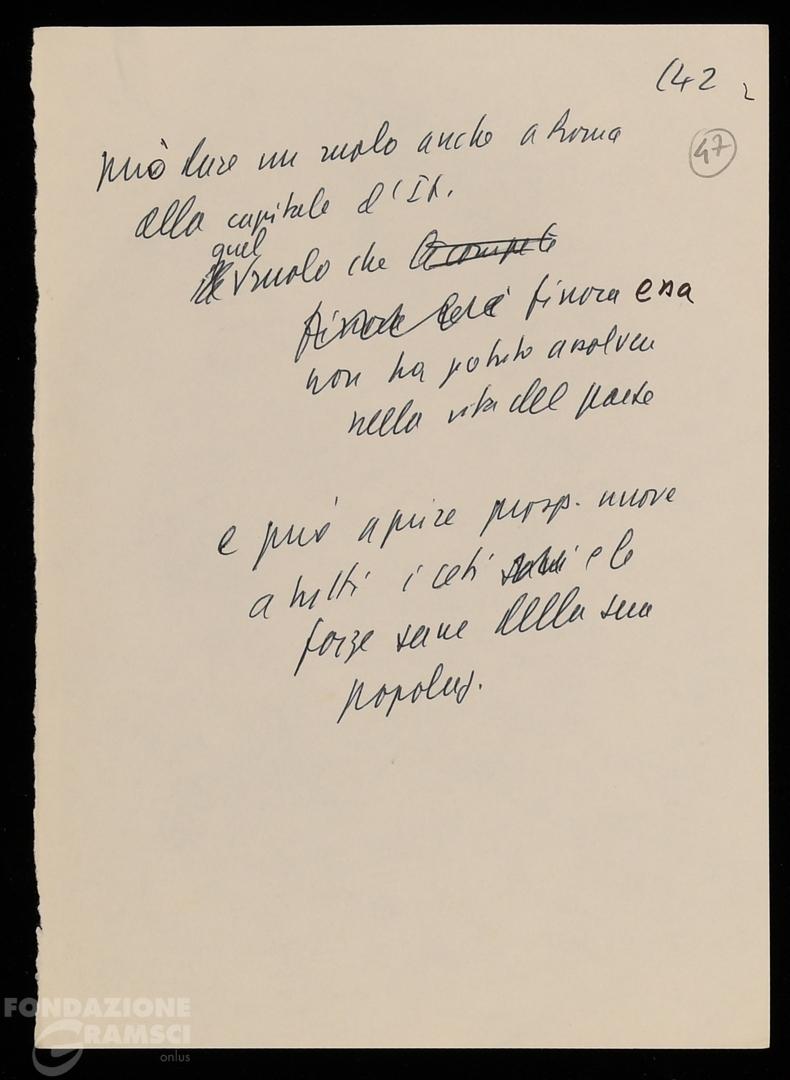 (42 2
47
può dare un ruolo anche a Roma
alla capitale d'It.
quel
ruolo che le compete
finora essa
non ha potuto assolvere
nella vita del paese
e può aprire prosp. nuove
a tutti i ceti e le
forze sane della sua
popolaz.
FONDAZIONE
GRAMSCI
onlus